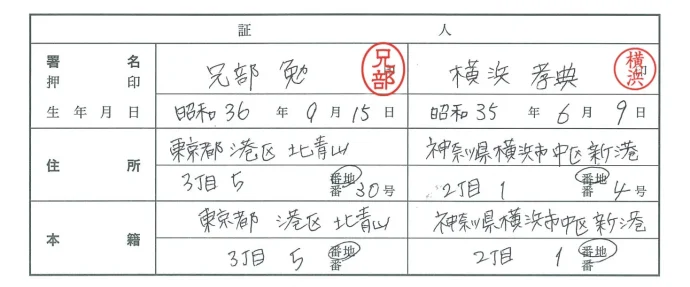 証 人
署名 兄部 勉 兄部 横浜 孝典 横浜
押印 印 印
生年月日 昭和36年9月15日 昭和35年6月9日
住所 東京都港区北青山 神奈川県横浜市中区新港
3丁目5 番地 番 30号 2丁目1 番地 番 4号
本籍 東京都 港区 北青山 神奈川県横浜市中区新港
3丁目5 番地 番 2丁目 1 番地 番